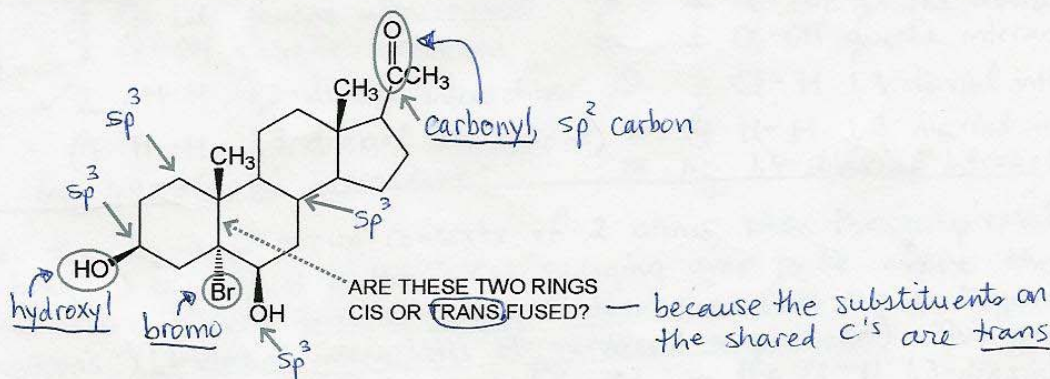 O
CH₃
CCH₃
sp³
carbonyl, sp² carbon
CH₃
sp³
sp³
HO
Br
hydroxyl
bromo
OH
sp³
ARE THESE TWO RINGS
CIS OR TRANS FUSED? — because the substituents on
the shared C's are trans